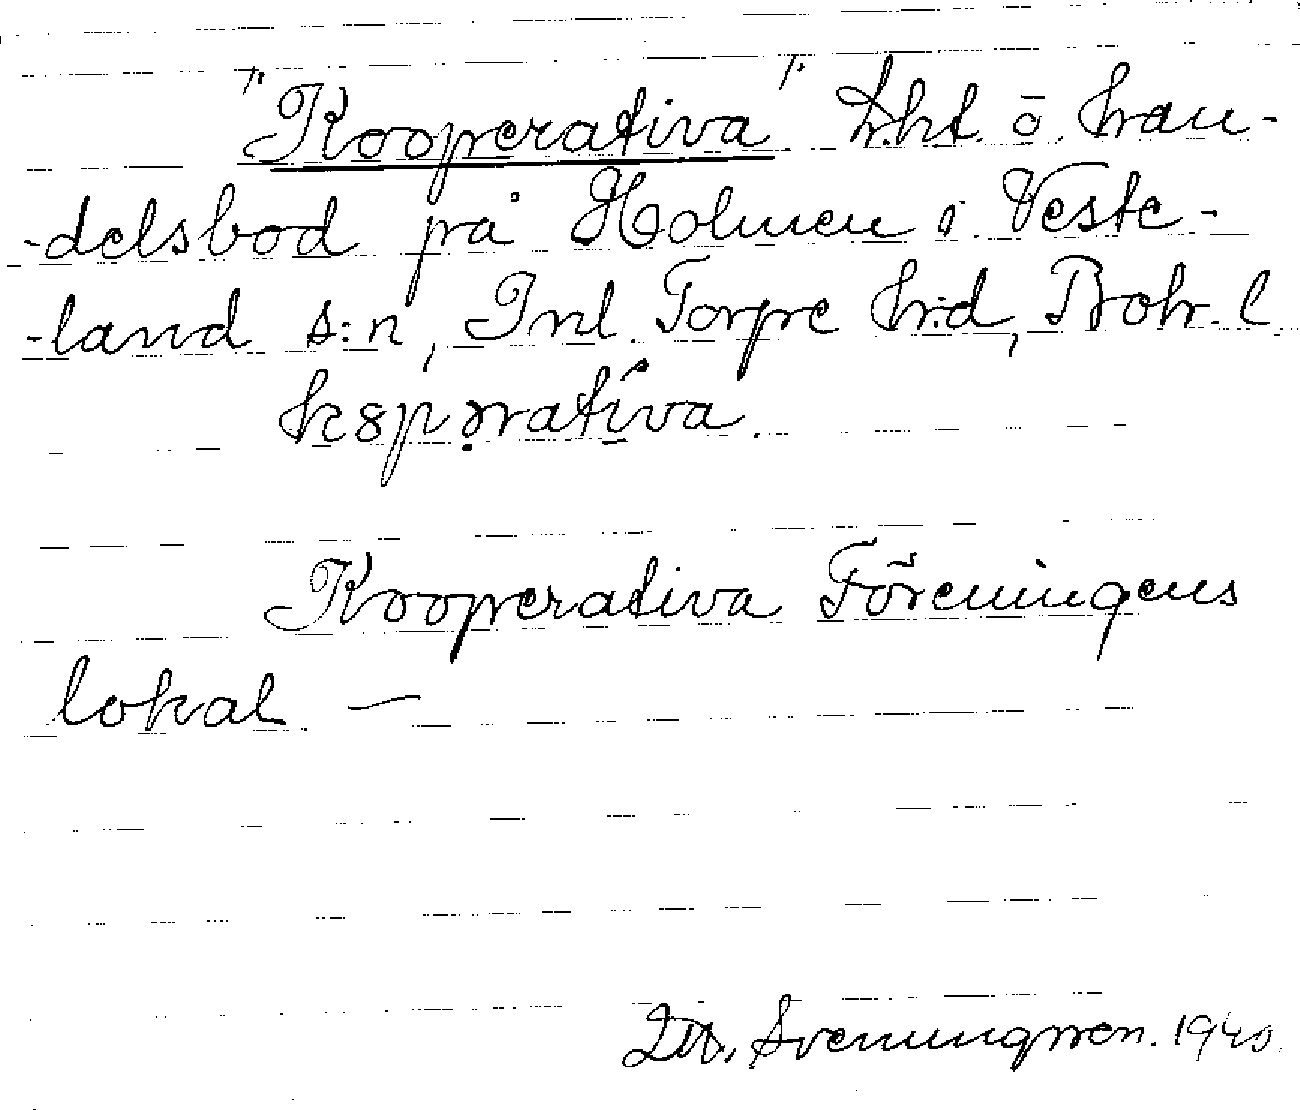 "Kooperativa" Lht. o. han-
-delsbod på Holmen i Veste-
-land s:n, Inl. Torpe h:d, Boh. l.
kɛ8pəratíva.
Kooperativa Föreningens
lokal. —
Svenungsson. 1940.